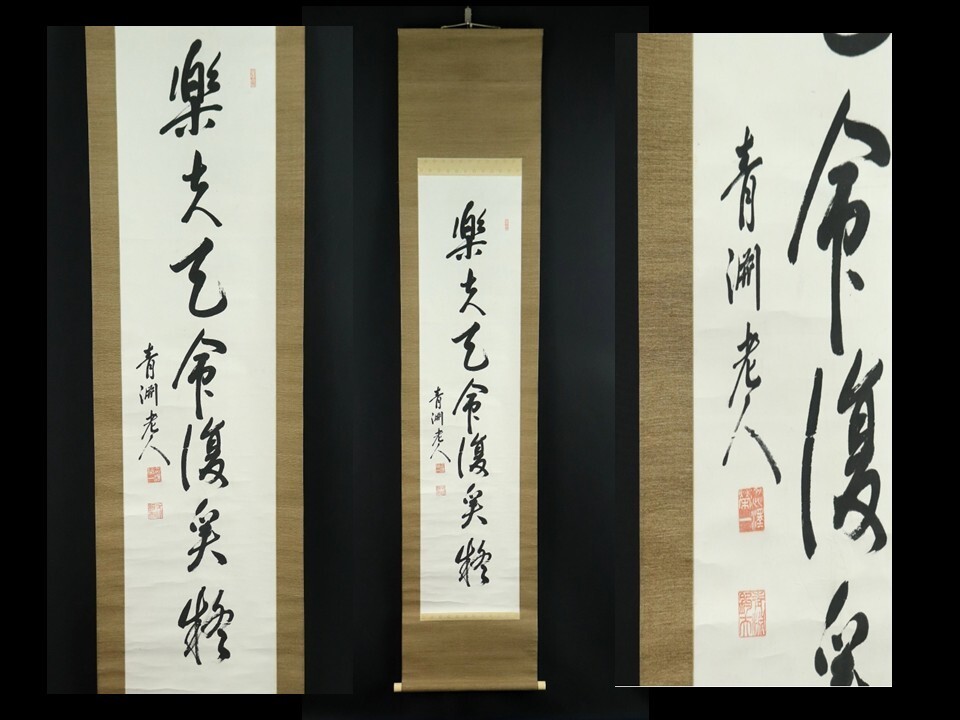 樂夫天命復奚疑
青淵老人
樂夫天命復奚疑
青淵老人
命復奚
青淵老人
澁澤
榮一